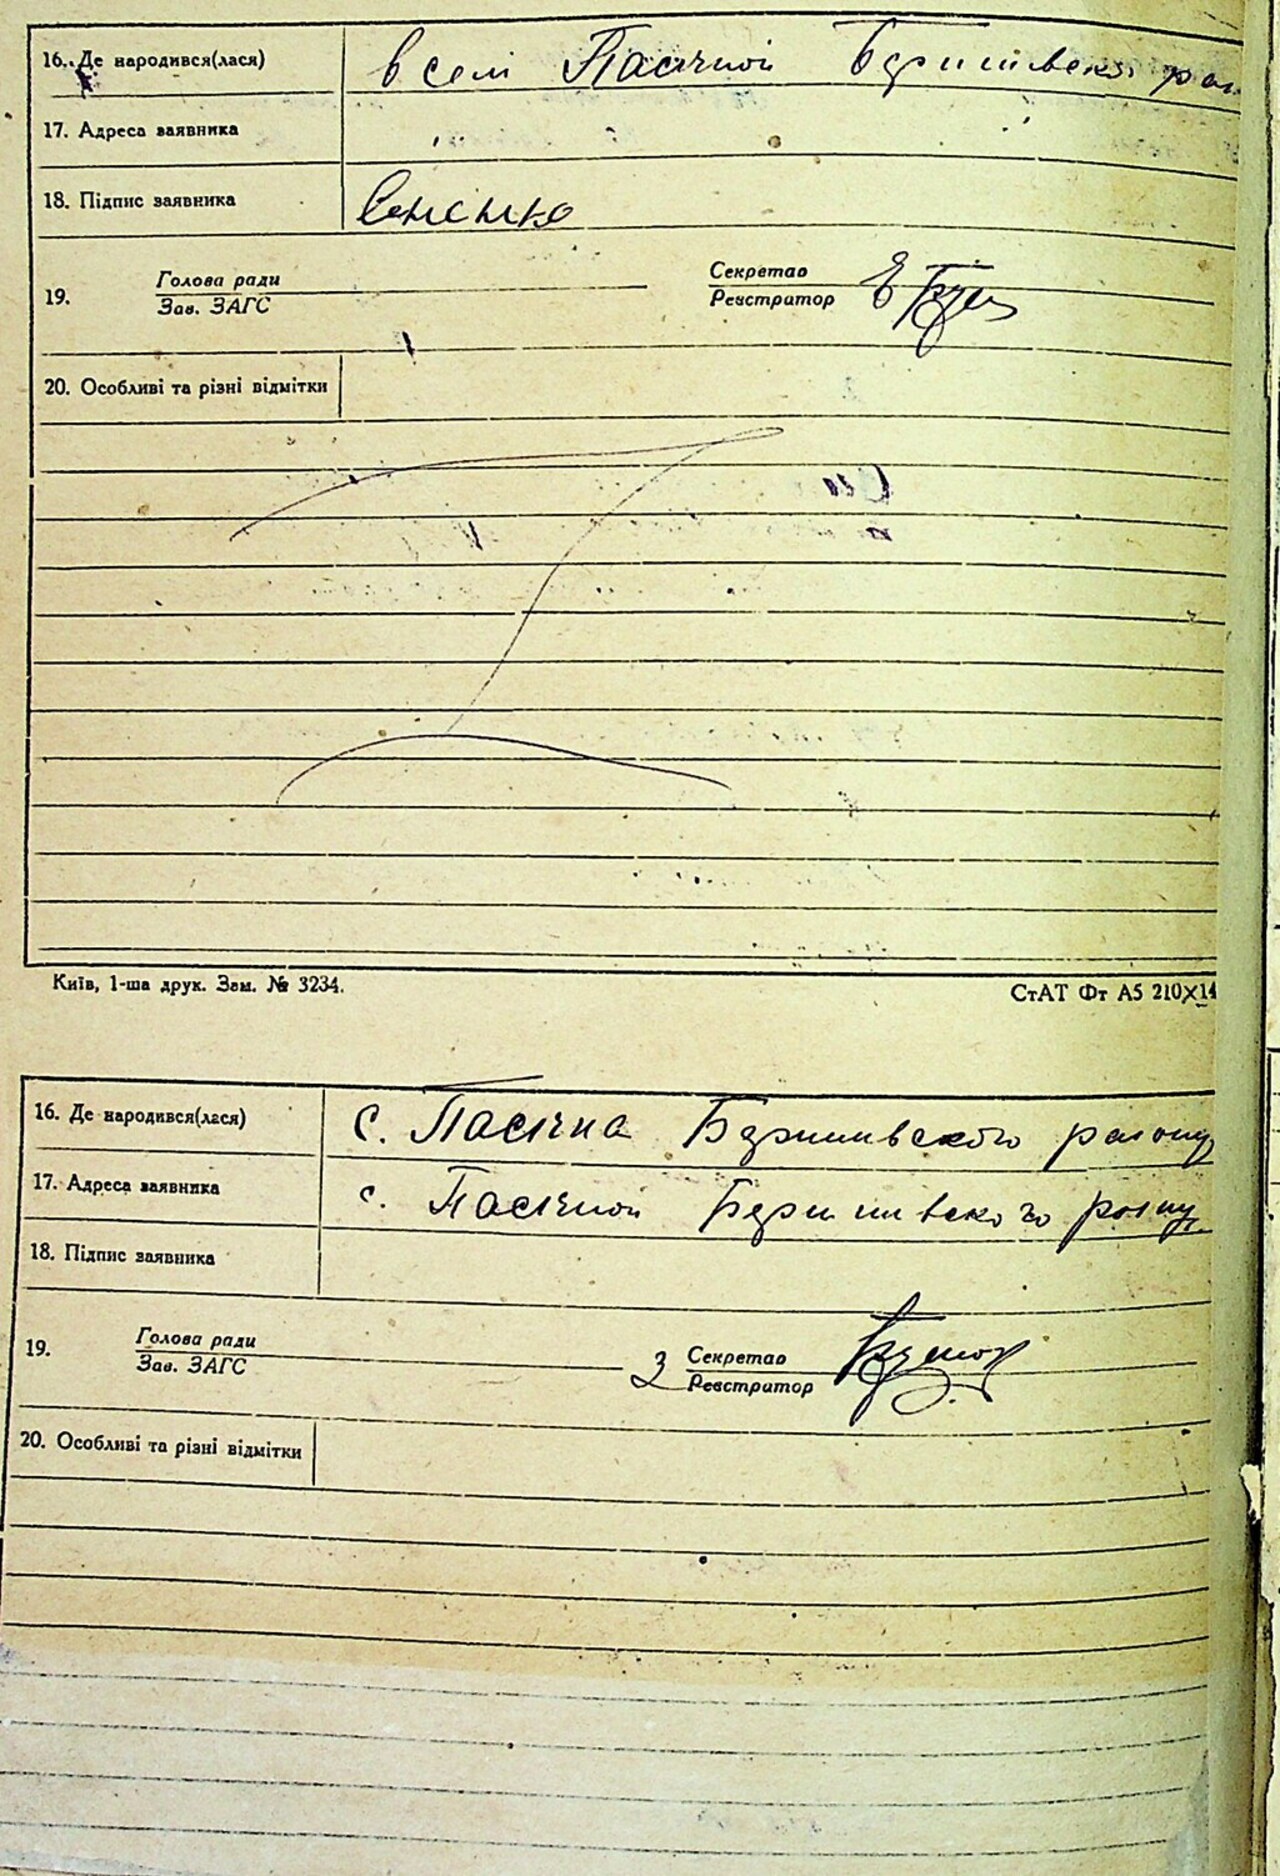 16. Де народився(лася) в селі Пасічной
17. Адреса заявника
18. Підпис заявника
19. Голова ради Секретар
Зав. ЗАГС Реєстратор
20. Особливі та різні відмітки
Київ, 1-ша друк. Зам. № 3234. СтАТ Фт А5 210×14
16. Де народився(лася) с. Пасічна району
17. Адреса заявника с. Пасічной
18. Підпис заявника
19. Голова ради З Секретар
Зав. ЗАГС Реєстратор
20. Особливі та різні відмітки